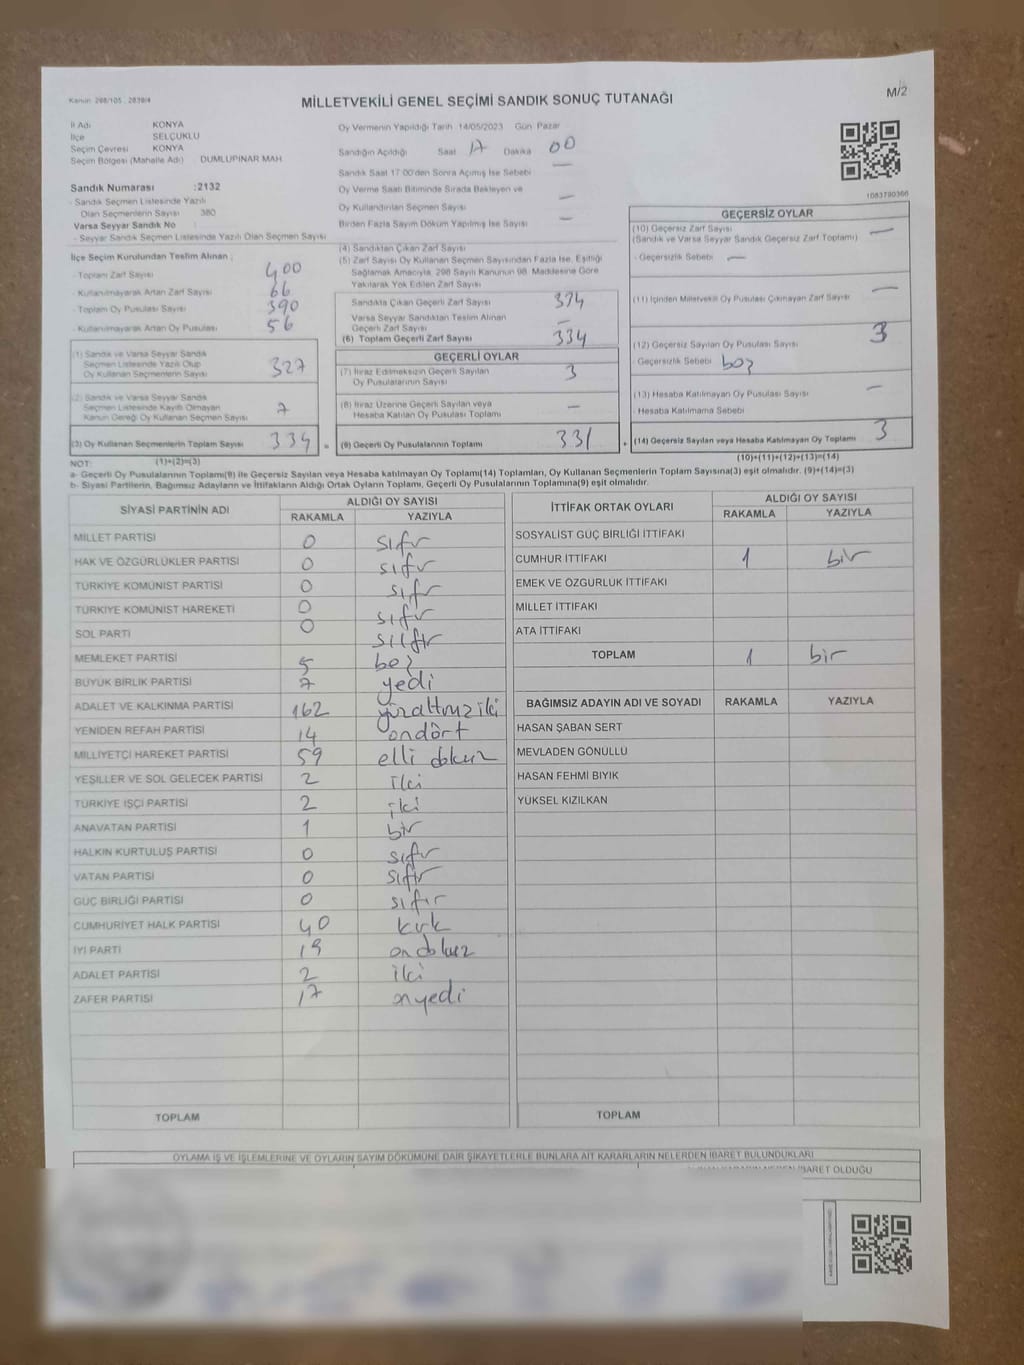 Kanun 298/105 , 2839/4
M/2
MİLLETVEKİLİ GENEL SEÇİMİ SANDIK SONUÇ TUTANAĞI
İl Adı KONYA
İlçe SELÇUKLU
Seçim Çevresi KONYA
Seçim Bölgesi (Mahalle Adı) DUMLUPINAR MAH.
Sandık Numarası :2132
- Sandık Seçmen Listesinde Yazılı
Olan Seçmenlerin Sayısı 380
Varsa Seyyar Sandık No
- Seyyar Sandık Seçmen Listesinde Yazılı Olan Seçmen Sayısı
Oy Vermenin Yapıldığı Tarih 14/05/2023 Gün Pazar
Sandığın Açıldığı Saat 17 Dakika 00
Sandık Saat 17:00'den Sonra Açılmış İse Sebebi —
Oy Verme Saati Bitiminde Sırada Bekleyen ve
Oy Kullandırılan Seçmen Sayısı —
Birden Fazla Sayım Döküm Yapılmış İse Sayısı —
1083790366
İlçe Seçim Kurulundan Teslim Alınan ;
- Toplam Zarf Sayısı 400
- Kullanılmayarak Artan Zarf Sayısı 66
- Toplam Oy Pusulası Sayısı 390
- Kullanılmayarak Artan Oy Pusulası 56
(1) Sandık ve Varsa Seyyar Sandık
Seçmen Listesinde Yazılı Olup
Oy Kullanan Seçmenlerin Sayısı 327
(2) Sandık ve Varsa Seyyar Sandık
Seçmen Listesinde Kayıtlı Olmayan
Kanun Gereği Oy Kullanan Seçmen Sayısı 7
(3) Oy Kullanan Seçmenlerin Toplam Sayısı 334
(4) Sandıktan Çıkan Zarf Sayısı
(5) Zarf Sayısı Oy Kullanan Seçmen Sayısından Fazla İse, Eşitliği
Sağlamak Amacıyla, 298 Sayılı Kanunun 98. Maddesine Göre
Yakılarak Yok Edilen Zarf Sayısı
Sandıkta Çıkan Geçerli Zarf Sayısı 334
Varsa Seyyar Sandıktan Teslim Alınan
Geçerli Zarf Sayısı —
(6) Toplam Geçerli Zarf Sayısı 334
GEÇERLİ OYLAR
(7) İtiraz Edilmeksizin Geçerli Sayılan
Oy Pusulalarının Sayısı 3
(8) İtiraz Üzerine Geçerli Sayılan veya
Hesaba Katılan Oy Pusulası Toplamı —
= (9) Geçerli Oy Pusulalarının Toplamı 331 +
GEÇERSİZ OYLAR
(10) Geçersiz Zarf Sayısı
(Sandık ve Varsa Seyyar Sandık Geçersiz Zarf Toplamı) —
- Geçersizlik Sebebi —
(11) İçinden Milletvekili Oy Pusulası Çıkmayan Zarf Sayısı —
(12) Geçersiz Sayılan Oy Pusulası Sayısı 3
Geçersizlik Sebebi boş
(13) Hesaba Katılmayan Oy Pusulası Sayısı —
- Hesaba Katılmama Sebebi
(14) Geçersiz Sayılan veya Hesaba Katılmayan Oy Toplamı 3
NOT: (1)+(2)=(3)
(10)+(11)+(12)+(13)=(14)
a- Geçerli Oy Pusulalarının Toplamı(9) ile Geçersiz Sayılan veya Hesaba katılmayan Oy Toplamı(14) Toplamları, Oy Kullanan Seçmenlerin Toplam Sayısına(3) eşit olmalıdır. (9)+(14)=(3)
b- Siyasi Partilerin, Bağımsız Adayların ve İttifakların Aldığı Ortak Oyların Toplamı, Geçerli Oy Pusulalarının Toplamına(9) eşit olmalıdır.
SİYASİ PARTİNİN ADI ALDIĞI OY SAYISI
RAKAMLA YAZIYLA
MİLLET PARTİSİ 0 sıfır
HAK VE ÖZGÜRLÜKLER PARTİSİ 0 sıfır
TÜRKİYE KOMÜNİST PARTİSİ 0 sıfır
TÜRKİYE KOMÜNİST HAREKETİ 0 sıfır
SOL PARTİ 0 sıfır
MEMLEKET PARTİSİ 5 beş
BÜYÜK BİRLİK PARTİSİ 7 yedi
ADALET VE KALKINMA PARTİSİ 162 yüzaltmışiki
YENİDEN REFAH PARTİSİ 14 ondört
MİLLİYETÇİ HAREKET PARTİSİ 59 elli dokuz
YEŞİLLER VE SOL GELECEK PARTİSİ 2 iki
TÜRKİYE İŞÇİ PARTİSİ 2 iki
ANAVATAN PARTİSİ 1 bir
HALKIN KURTULUŞ PARTİSİ 0 sıfır
VATAN PARTİSİ 0 sıfır
GÜÇ BİRLİĞİ PARTİSİ 0 sıfır
CUMHURİYET HALK PARTİSİ 40 kırk
İYİ PARTİ 19 ondokuz
ADALET PARTİSİ 2 iki
ZAFER PARTİSİ 17 onyedi
TOPLAM
İTTİFAK ORTAK OYLARI ALDIĞI OY SAYISI
RAKAMLA YAZIYLA
SOSYALİST GÜÇ BİRLİĞİ İTTİFAKI
CUMHUR İTTİFAKI 1 bir
EMEK VE ÖZGÜRLÜK İTTİFAKI
MİLLET İTTİFAKI
ATA İTTİFAKI
TOPLAM 1 bir
BAĞIMSIZ ADAYIN ADI VE SOYADI RAKAMLA YAZIYLA
HASAN ŞABAN SERT
MEVLADEN GÖNÜLLÜ
HASAN FEHMİ BIYIK
YÜKSEL KIZILKAN
TOPLAM
OYLAMA İŞ VE İŞLEMLERİNE VE OYLARIN SAYIM DÖKÜMÜNE DAİR ŞİKAYETLERLE BUNLARA AİT KARARLARIN NELERDEN İBARET BULUNDUKLARI
İBARET OLDUĞU